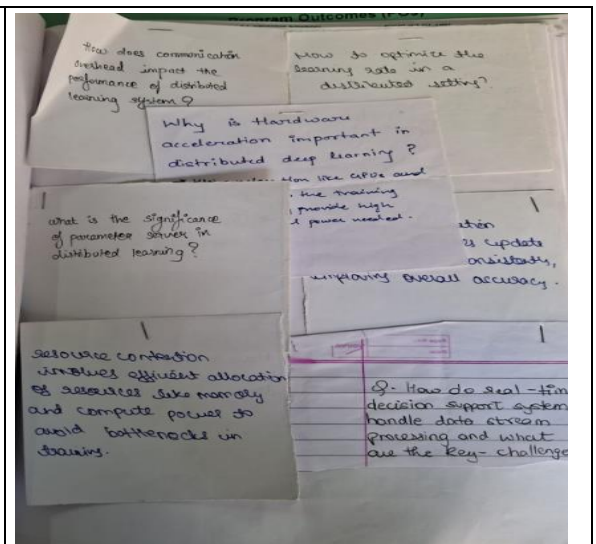 Program Outcomes (POs)
How does communication
overhead impact the
performance of distributed
learning system?
How to optimize the
learning rate in a
distributed setting?
Why is Hardware
acceleration important in
distributed deep learning?
like GPUs and
the training
provide high
power needed.
what is the significance
of parameter server in
distributed learning?
update
overall accuracy.
resource contention
involves efficient allocation
of resources like memory
and compute power to
avoid
training.
Q- How do real-tim
decision support system
handle data stream
processing and what
are the key- challenge